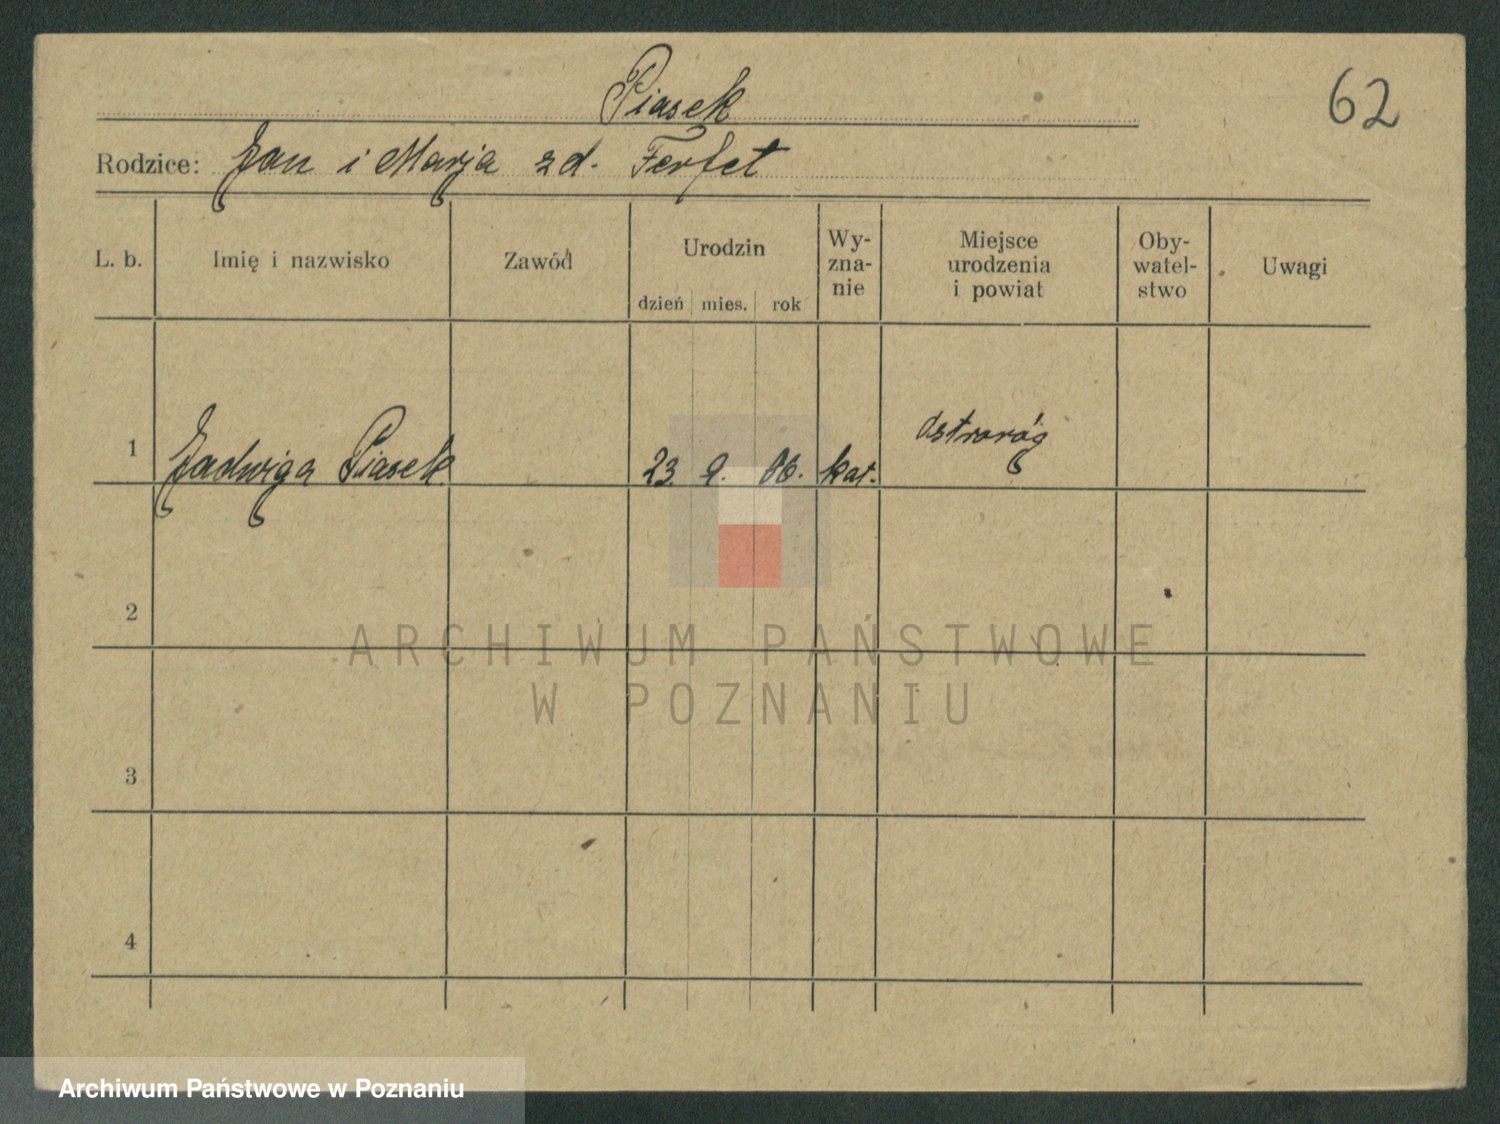 Piasek
62
Rodzice: Jan i Marja zd. Ferfet
L. b.
Imię i nazwisko
Zawód
Urodzin
dzień mies. rok
Wy-
zna-
nie
Miejsce
urodzenia
i powiat
Oby-
watel-
stwo
Uwagi
1 Jadwiga Piasek 23. 9. kat. Ostroróg
2
3
4
ARCHIWUM PAŃSTWOWE
W POZNANIU
Archiwum Państwowe w Poznaniu